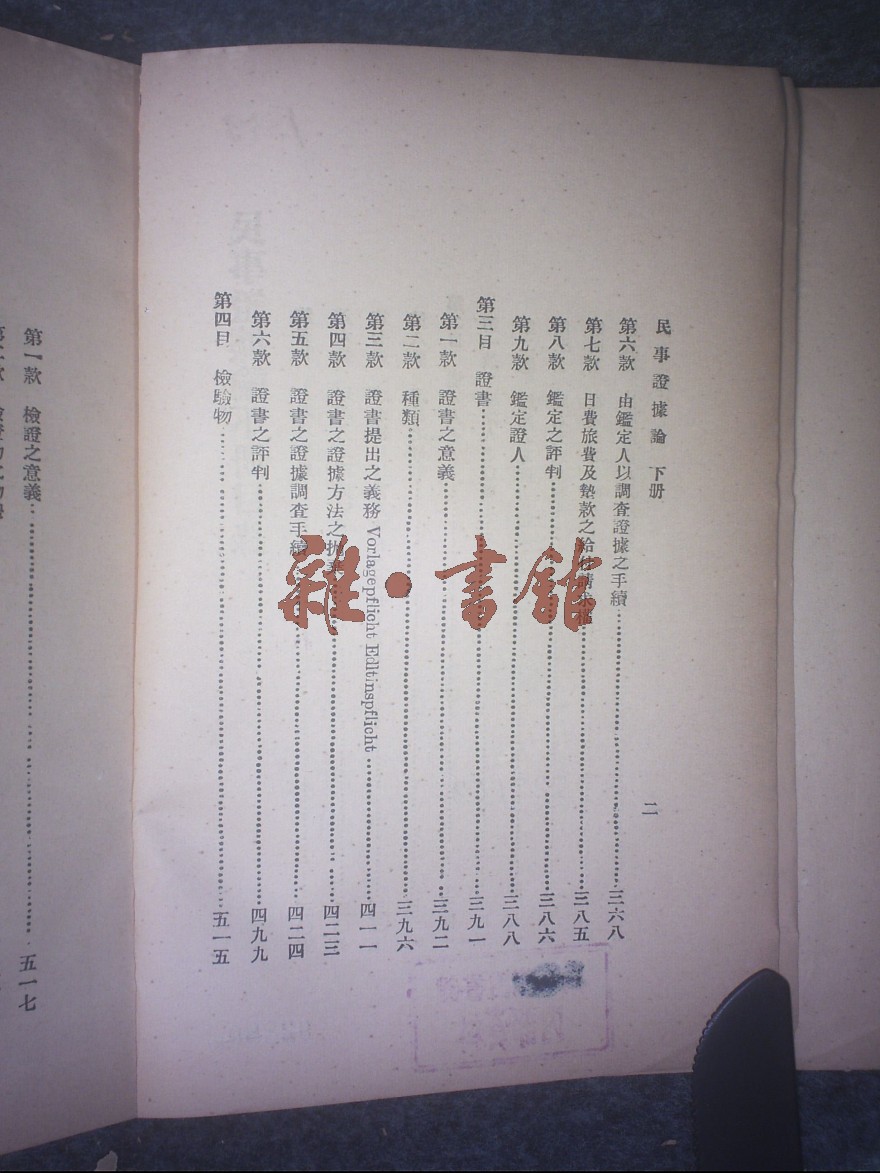 民事證據論 下册 二
第六款 由鑑定人以調查證據之手續 三六八
第七款 日費旅費及墊款之給付請求權 三八五
第八款 鑑定之評判 三八六
第九款 鑑定證人 三八八
第三目 證書 三九一
第一款 證書之意義 三九二
第二款 種類 三九六
第三款 證書提出之義務 Vorlagepflicht Edltinspflicht 四一一
第四款 證書之證據方法之拋棄 四二三
第五款 證書之證據調查手續 四二四
第六款 證書之評判 四九九
第四目 檢驗物 五一五
第一款 檢證之意義 五一七
雜·書館